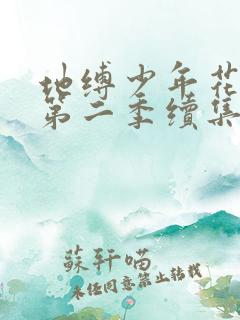 地缚少年花
第二季续集
蘇轩喵
未经同意禁止转载